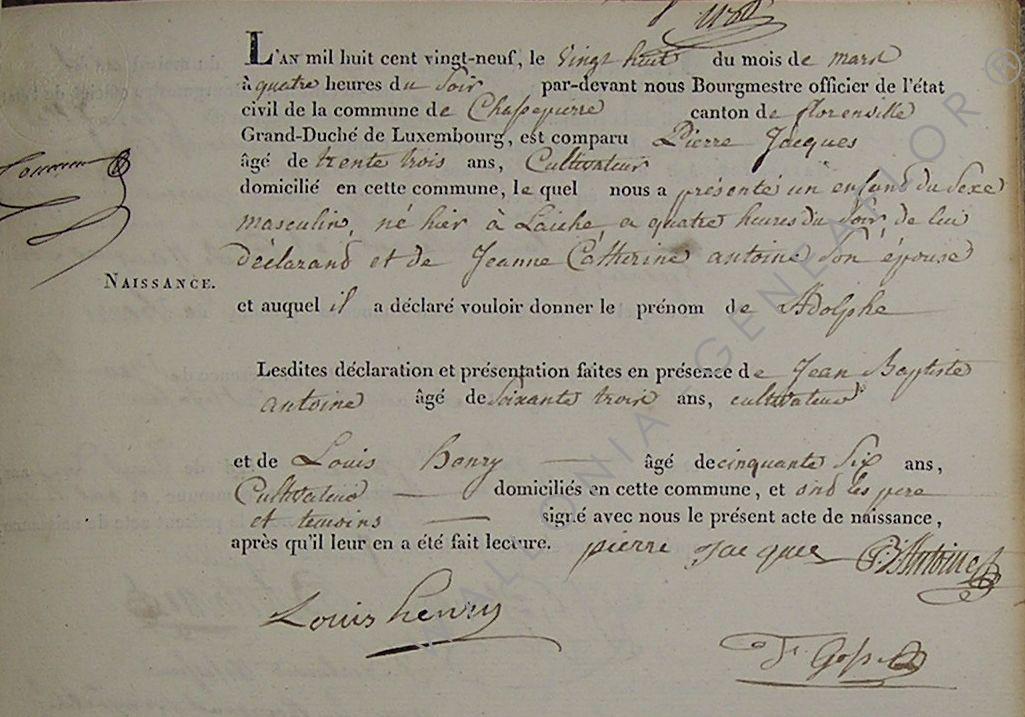 L'AN mil huit cent vingt-neuf, le vingt huit du mois de mars
à quatre heures du soir par-devant nous Bourgmestre officier de l'état
civil de la commune de Chassepierre canton de florenville
Grand-Duché de Luxembourg, est comparu Pierre Jacques
âgé de trente trois ans, Cultivateur
domicilié en cette commune, le quel nous a présenté un enfand du Sexe
masculin, né hier à Laiche, a quatre heures du Soir, de lui
déclarand et de Jeanne Catherine antoine Son épouse
NAISSANCE.
et auquel il a déclaré vouloir donner le prénom de Adolphe
Lesdites déclaration et présentation faites en présence de Jean Baptiste
antoine âgé de Soixante trois ans, cultivateur
et de Louis henry âgé de cinquante Six ans,
Cultivateur domiciliés en cette commune, et ond les pere
et temoins signé avec nous le présent acte de naissance,
après qu'il leur en a été fait lecture. pierre Jacques Antoine
Louis henry
GENEALOR ®